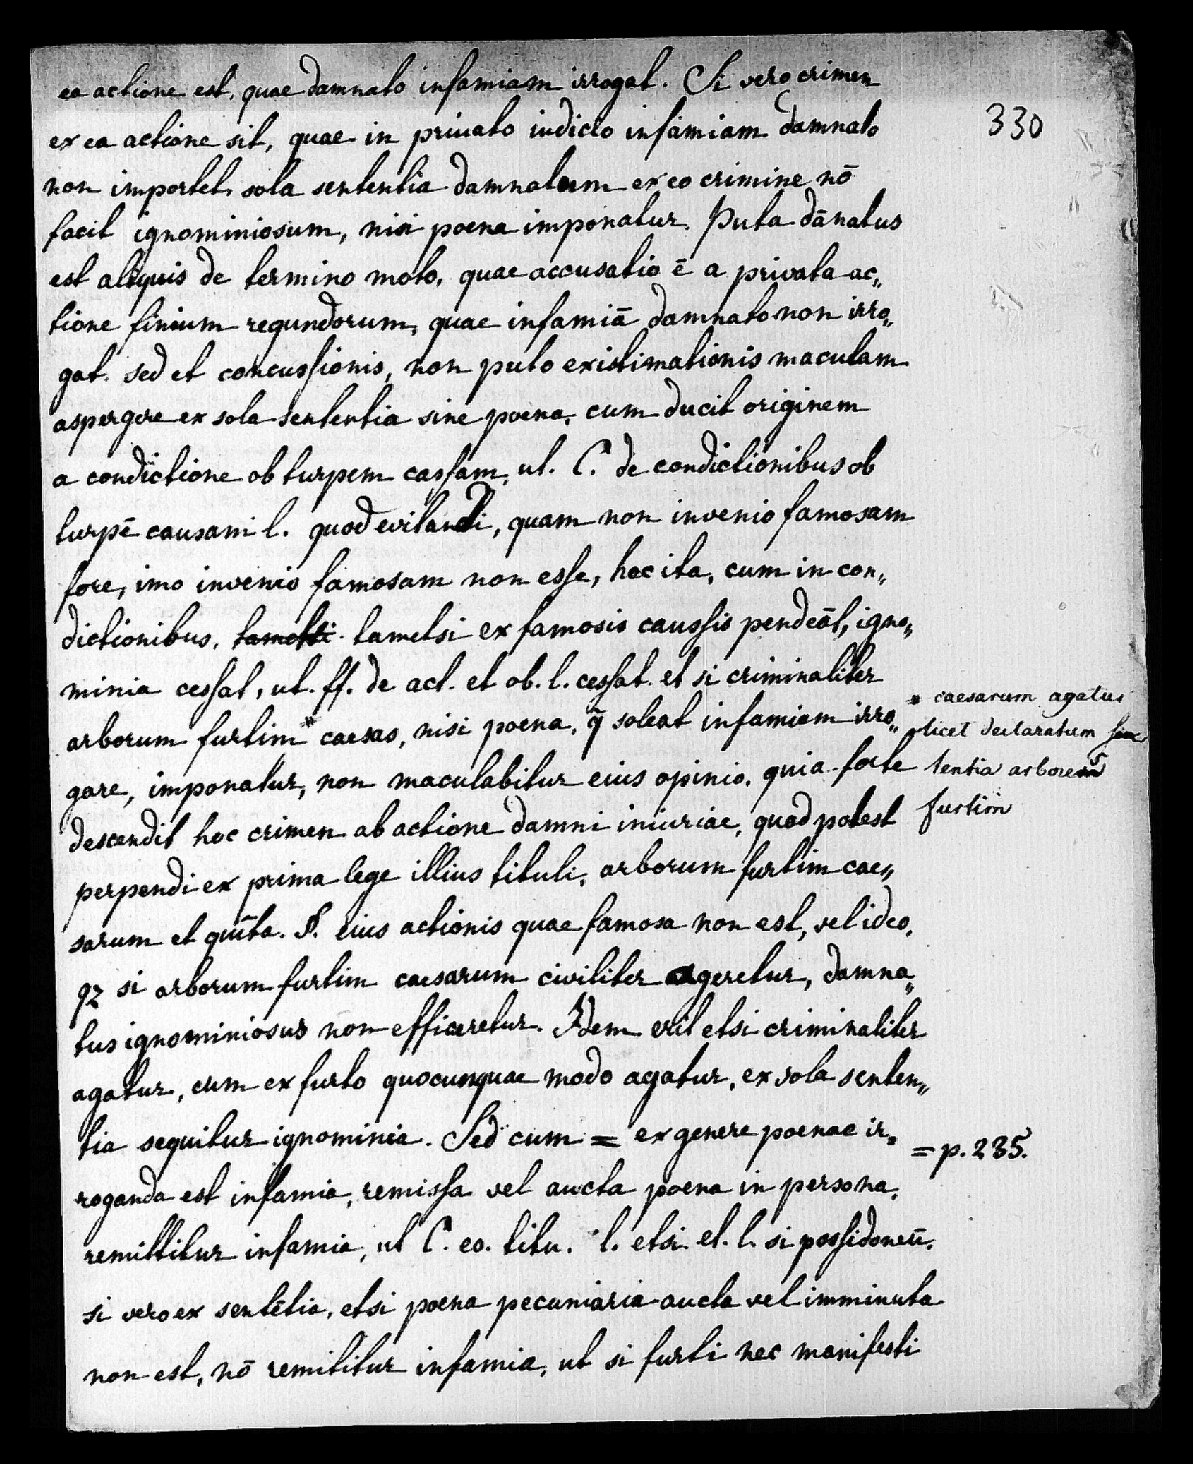 ea actione est, quae damnato infamiam irrogat. Si vero crimen
330
ex ea actione sit, quae in privato iudicio infamiam damnato
non importet, sola sententia damnatum ex eo crimine nō
facit ignominiosum, nisi poena imponatur. Puta dānatus
est aliquis de termino moto, quae accusatio ē a privata ac„
tione finium regundorum, quae infamiā damnato non irro„
gat. sed et concussionis, non puto existimationis maculam
aspergere ex sola sententia sine poena, cum ducit originem
a condictione ob turpem cassam, ut. C. de condictionibus ob
turpē causam l. quod evitandi, quam non invenio famosam
fore, imo invenio famosam non esse, hoc ita, cum in con„
dictionibus, tametsi tametsi ex famosis caussis pendeāt, igno„
minia cessat, ut. ff. de act. et ob. l. cessat. et si criminaliter
arborum furtim * caesas, nisi poena, q̄ soleat infamiam irro„
* caesarum agatur
licet declaratum sen
tentia arborem
furtim
gare, imponatur, non maculabitur eius opinio. quia forte
descendit hoc crimen ab actione damni iniuriae, quod potest
perpendi ex prima lege illius tituli, arborum furtim cae„
sarum et quīta. S. eius actionis quae famosa non est, vel ideo,
qz si arborum furtim caesarum civiliter ageretur, damna„
tus ignominiosus non efficeretur. Idem erit etsi criminaliter
agatur, cum ex furto quocunquae modo agatur, ex sola senten„
tia sequitur ignominia. Sed cum = ex genere poenae ir„
= p. 285.
roganda est infamia, remissa vel aucta poena in persona,
remittitur infamia, ut C. eo. titu. l. etsi et. l. si possidoneū.
si vero ex sentētia, etsi poena pecuniaria aucta vel imminuta
non est, nō remititur infamia, ut si furti nec manifesti